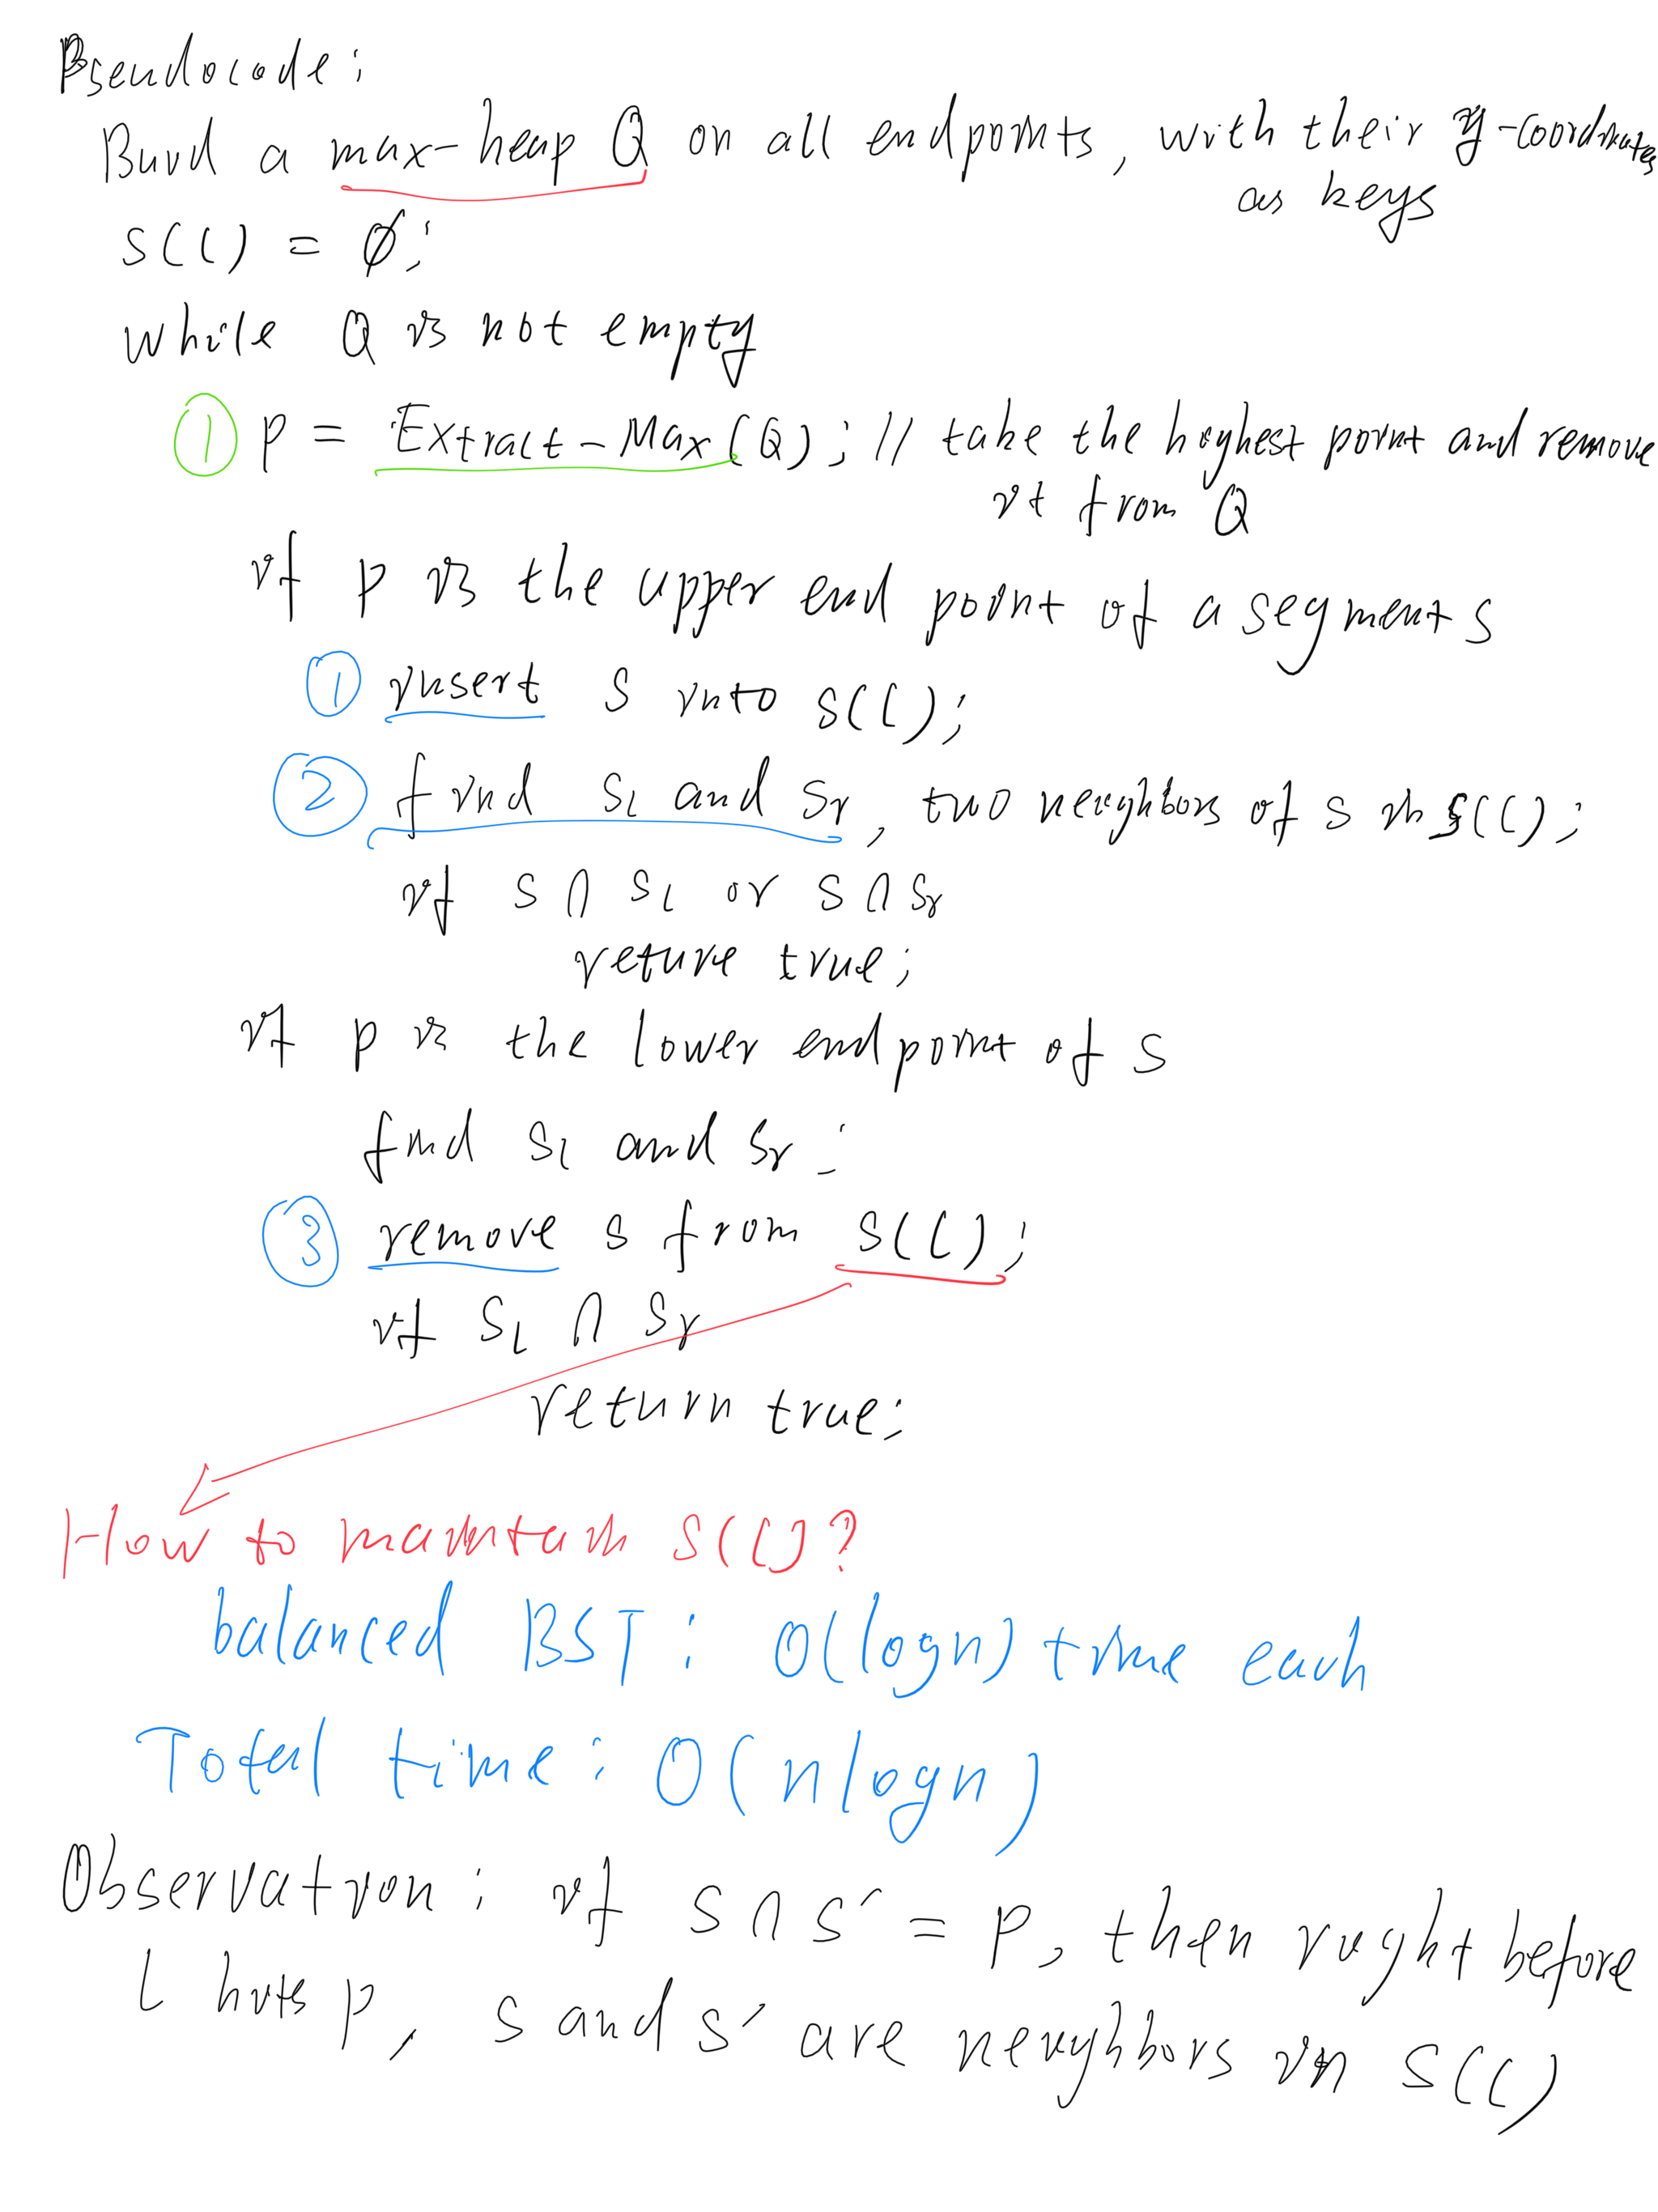 Pseudocode:
Build a max-heap Q on all endpoints, with their y-coordinates
as keys
S(l) = ∅;
while Q is not empty
① p = Extract-Max(Q); // take the highest point and remove
it from Q
if p is the upper end point of a segment s
① insert s into S(l);
② find sl and sr, two neighbors of s in S(l);
if s ∩ sl or s ∩ sr
returre true;
if p is the lower endpoint of s
find sl and sr;
③ remove s from S(l);
if sl ∩ sr
return true;
How to maintain S(l)?
balanced BST: O(logn) time each
Total time: O(nlogn)
Observation: if s ∩ s' = p, then right before
l hits p, s and s' are neighbors in S(l)